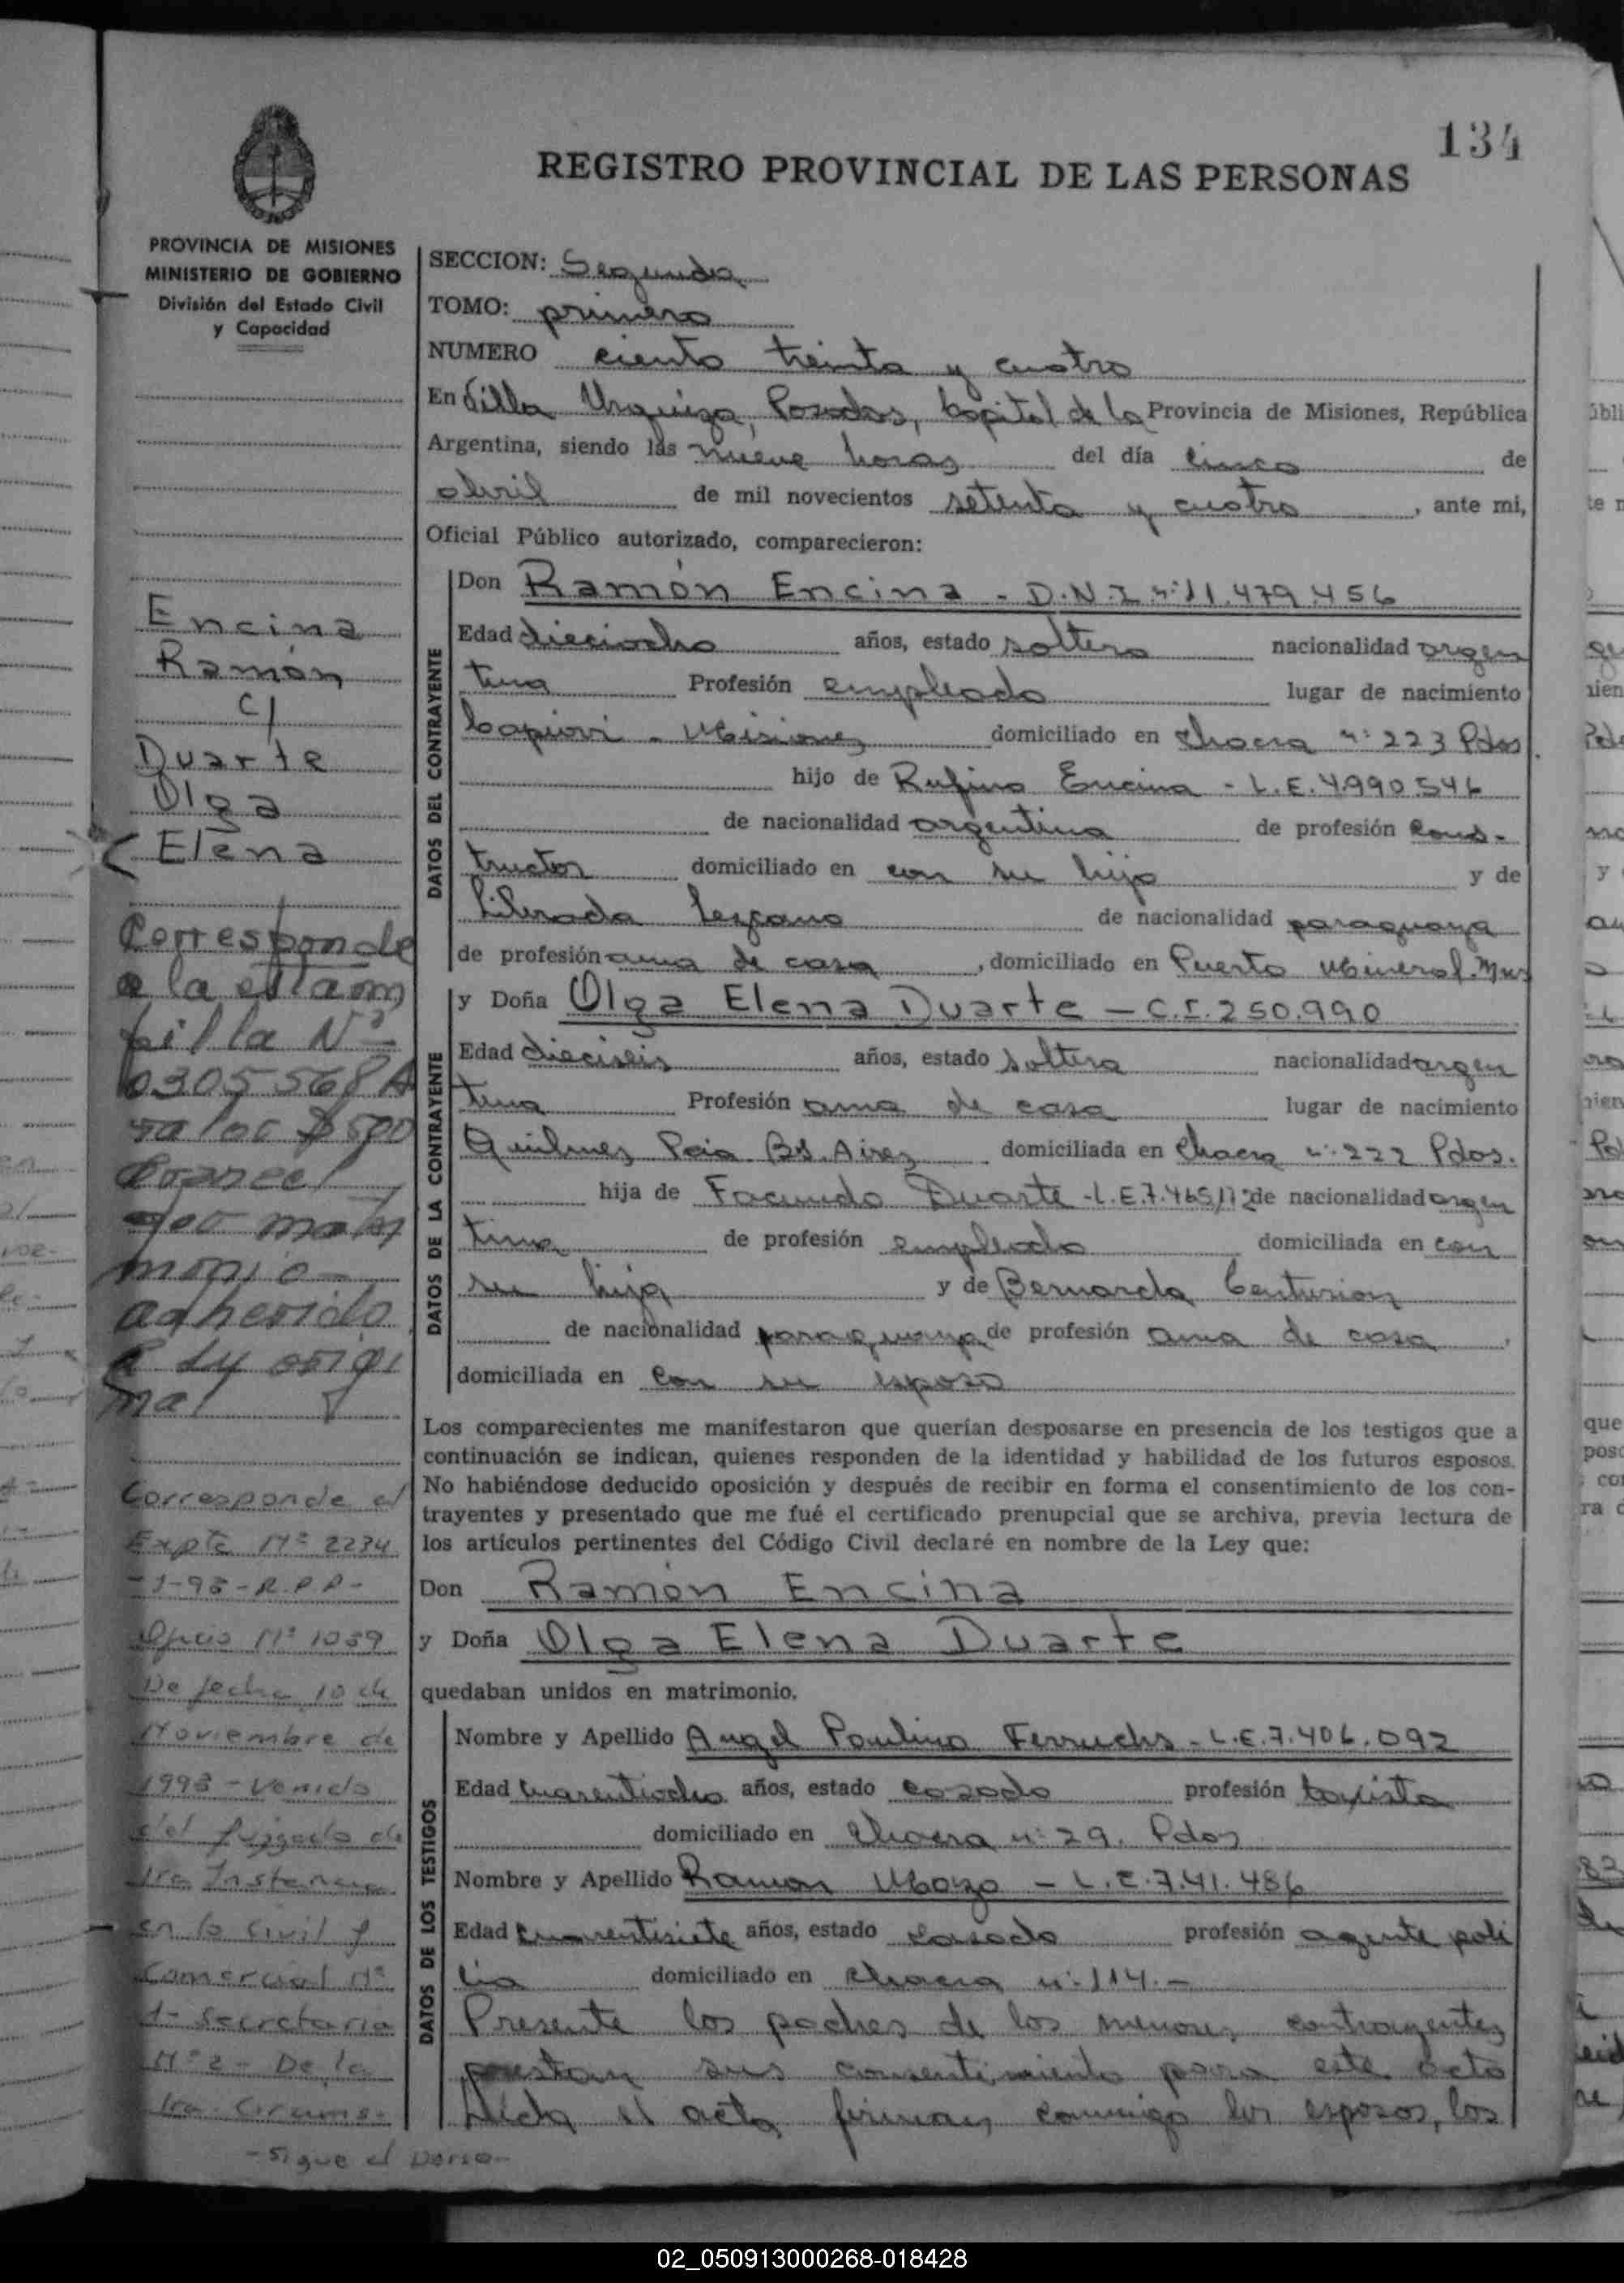 134
REGISTRO PROVINCIAL DE LAS PERSONAS
PROVINCIA DE MISIONES
MINISTERIO DE GOBIERNO
División del Estado Civil
y Capacidad
Encina
Ramón
c/
Duarte
Olga
Elena
Corresponde
a la estam
pilla Nº
0305568A
valor $500
Arancel
matri
monio
adherido
a su origi
nal
Corresponde al
Expte Nº 2234
-1-93-R.P.P-
Oficio Nº 1059
De fecha 10 de
Noviembre de
1993 - Venido
del Juzgado de
1ra Instancia
en lo Civil y
Comercial Nº
1- Secretaria
Nº 2 - De la
1ra. Circuns-
- Sigue al Dorso-
SECCION: Segunda
TOMO: primero
NUMERO ciento treinta y cuatro
En Villa Urquiza, Posadas, Capital de la Provincia de Misiones, República
Argentina, siendo las nueve horas del día cinco de
abril de mil novecientos setenta y cuatro, ante mi,
Oficial Público autorizado, comparecieron:
DATOS DEL CONTRAYENTE
Don Ramón Encina - D.N.I nº 11.479.456
Edad dieciocho años, estado soltero nacionalidad argen
tina Profesión empleado lugar de nacimiento
Capiovi - Misiones domiciliado en chacra nº 223 Pdas
hijo de Rufino Encina - L.E. 4.990.546
de nacionalidad argentina de profesión cons-
tructor domiciliado en con su hijo y de
Librada Lezcano de nacionalidad paraguaya
de profesión ama de casa, domiciliado en Puerto Mineral. Mns
DATOS DE LA CONTRAYENTE
y Doña Olga Elena Duarte - C.I. 250.990
Edad dieciseis años, estado soltera nacionalidad argen
tina Profesión ama de casa lugar de nacimiento
Quilmes Pcia Bs. Aires domiciliada en chacra nº 222 Pdas.
hija de Facundo Duarte - L.E. 7.465.112 de nacionalidad argen
tina de profesión empleado domiciliada en con
su hija y de Bernarda Centurion
de nacionalidad paraguaya de profesión ama de casa,
domiciliada en con su esposo
Los comparecientes me manifestaron que querían desposarse en presencia de los testigos que a
continuación se indican, quienes responden de la identidad y habilidad de los futuros esposos.
No habiéndose deducido oposición y después de recibir en forma el consentimiento de los con-
trayentes y presentado que me fué el certificado prenupcial que se archiva, previa lectura de
los artículos pertinentes del Código Civil declaré en nombre de la Ley que:
Don Ramón Encina
y Doña Olga Elena Duarte
quedaban unidos en matrimonio.
DATOS DE LOS TESTIGOS
Nombre y Apellido Angel Paulino - L.E. 7.406.092
Edad cuarentiocho años, estado casado profesión taxista
domiciliado en chacra nº 29. Pdas
Nombre y Apellido Ramon - L.E. 7.41.486
Edad cuarentisiete años, estado casado profesión agente poli
cia domiciliado en chacra nº 114.-
Presente los padres de los menores contrayentes
prestan sus consentimiento para este acto
Leída el acta firman conmigo los esposos, los
02_050913000268-018428